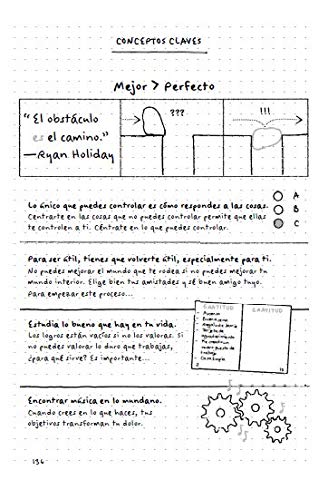 CONCEPTOS CLAVES
Mejor > Perfecto
"El obstáculo
es el camino."
—Ryan Holiday
???
!!!
Lo único que puedes controlar es cómo respondes a las cosas.
Centrarte en las cosas que no puedes controlar permite que ellas
te controlen a ti. Céntrate en lo que puedes controlar.
A
B
C
Para ser útil, tienes que volverte útil, especialmente para ti.
No puedes mejorar el mundo que te rodea si no puedes mejorar tu
mundo interior. Elige bien tus amistades y sé buen amigo tuyo.
Para empezar este proceso...
Estudia lo bueno que hay en tu vida.
Los logros están vacíos si no los valoras. Si
no puedes valorar lo duro que trabajas,
¿para qué sirve? Es importante...
GRATITUD
GRATITUD
Encontrar música en lo mundano.
Cuando crees en lo que haces, tus
objetivos transforman tu dolor.
136